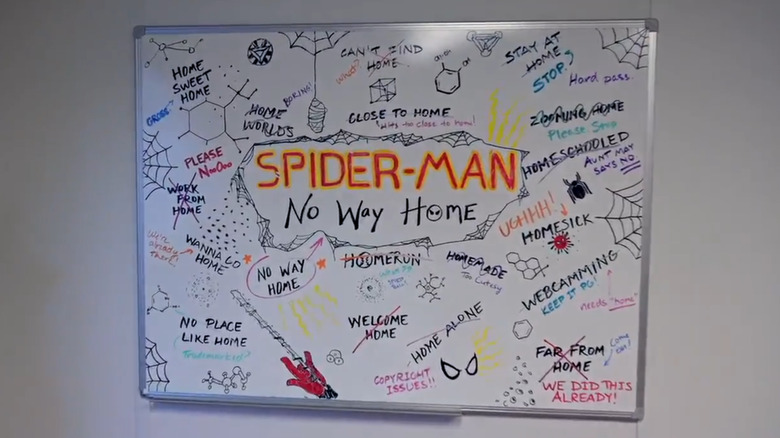 HOME
SWEET
HOME
GROSS
CAN'T FIND
HOME
WHAT?
STAY AT
HOME
STOP
Hard pass.
HOME
WORLDS
BORING!
CLOSE TO HOME
Hits too close to home!
ZOOMING HOME
Please Stop
PLEASE
NoOoo
WORK
FROM
HOME
SPIDER-MAN
No Way Home
HOMESCHOOLED
AUNT MAY
SAYS NO
UGHHH!
HOMESICK
We're
already
there!
WANNA GO
HOME
NO WAY
HOME
HOMERUN
HOMEMADE
Too Cutesy
WEBCAMMING
KEEP IT PG!
needs "home"
NO PLACE
LIKE HOME
Trademarked?
WELCOME
HOME
HOME ALONE
COPYRIGHT
ISSUES!!
FAR FROM
HOME
COME
ON!
WE DID THIS
ALREADY!